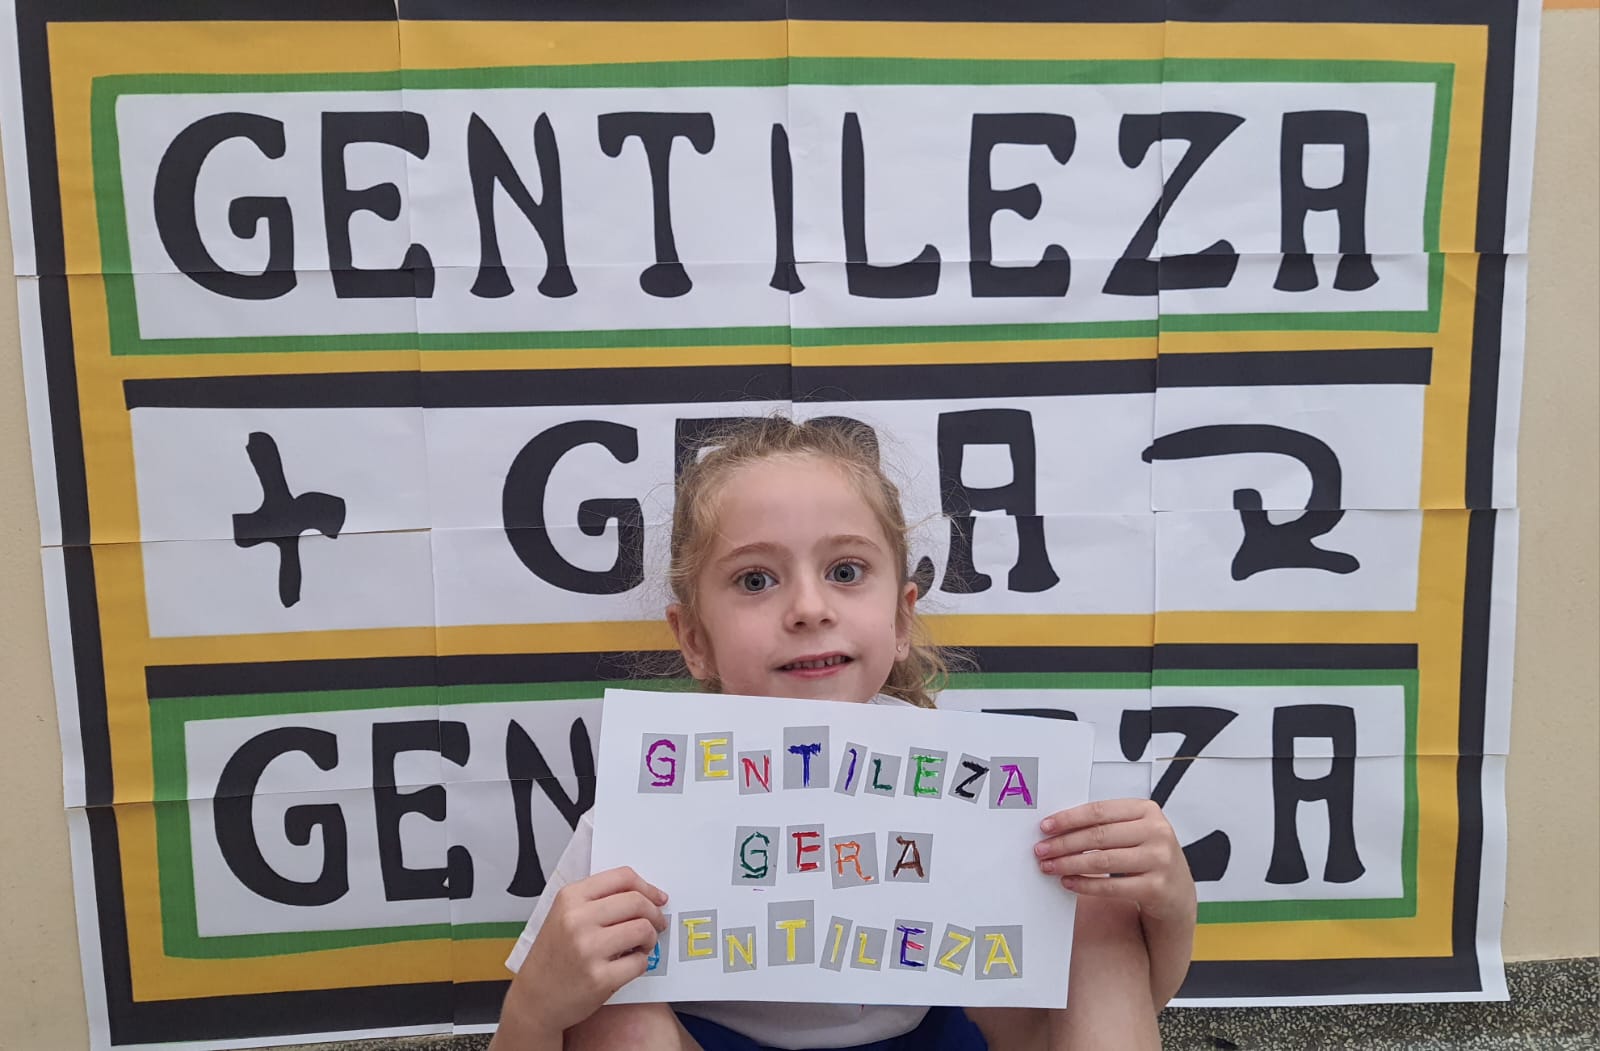 GENTILEZA
GERA
GENTILEZA
GENTILEZA
GERA
GENTILEZA